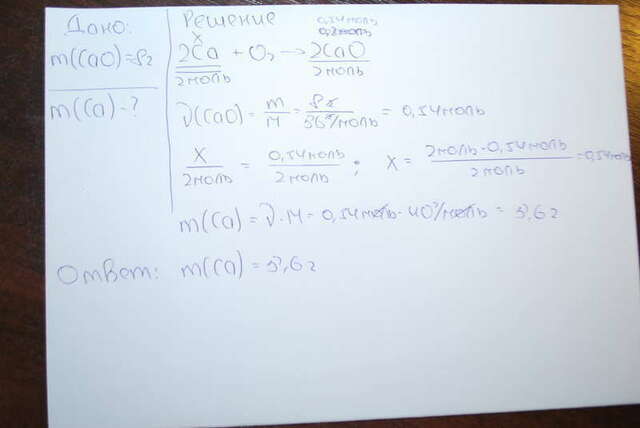 Дано:
m(CaO)=8г
m(Ca)-?
Решение
0,14моль
0,2моль
x
2Ca + O₂ → 2CaO
2моль 2моль
ν(CaO) = m/M = 8г/56г/моль = 0,14моль
x/2моль = 0,14моль/2моль ; x = 2моль·0,14моль/2моль = 0,14моль
m(Ca) = ν·M = 0,14моль·40г/моль = 5,6г
Ответ: m(Ca) = 5,6г